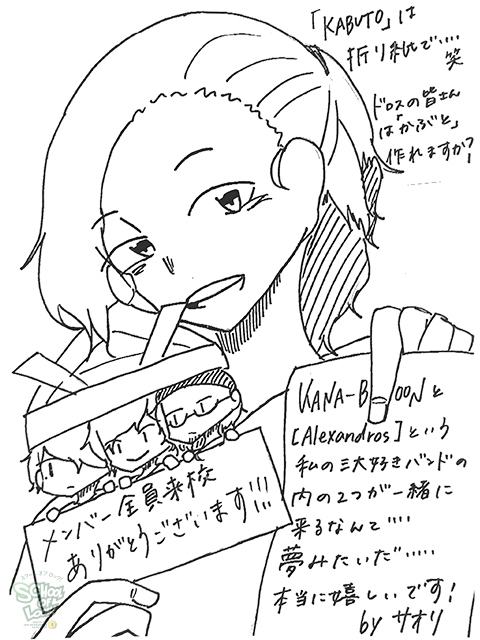 「KABUTO」は
折り紙で....
笑
ドロスの皆さん
は「かぶと」
作れますか?!
メンバー全員来校
ありがとうございます!!!
KANA-B OONと
[Alexandros]という
私の三大好きバンドの
内の2つが一緒に
来るなんて....
夢みたいだ.....
本当に嬉しいです!
by サオリ
SCHOOL
OF LOCK!